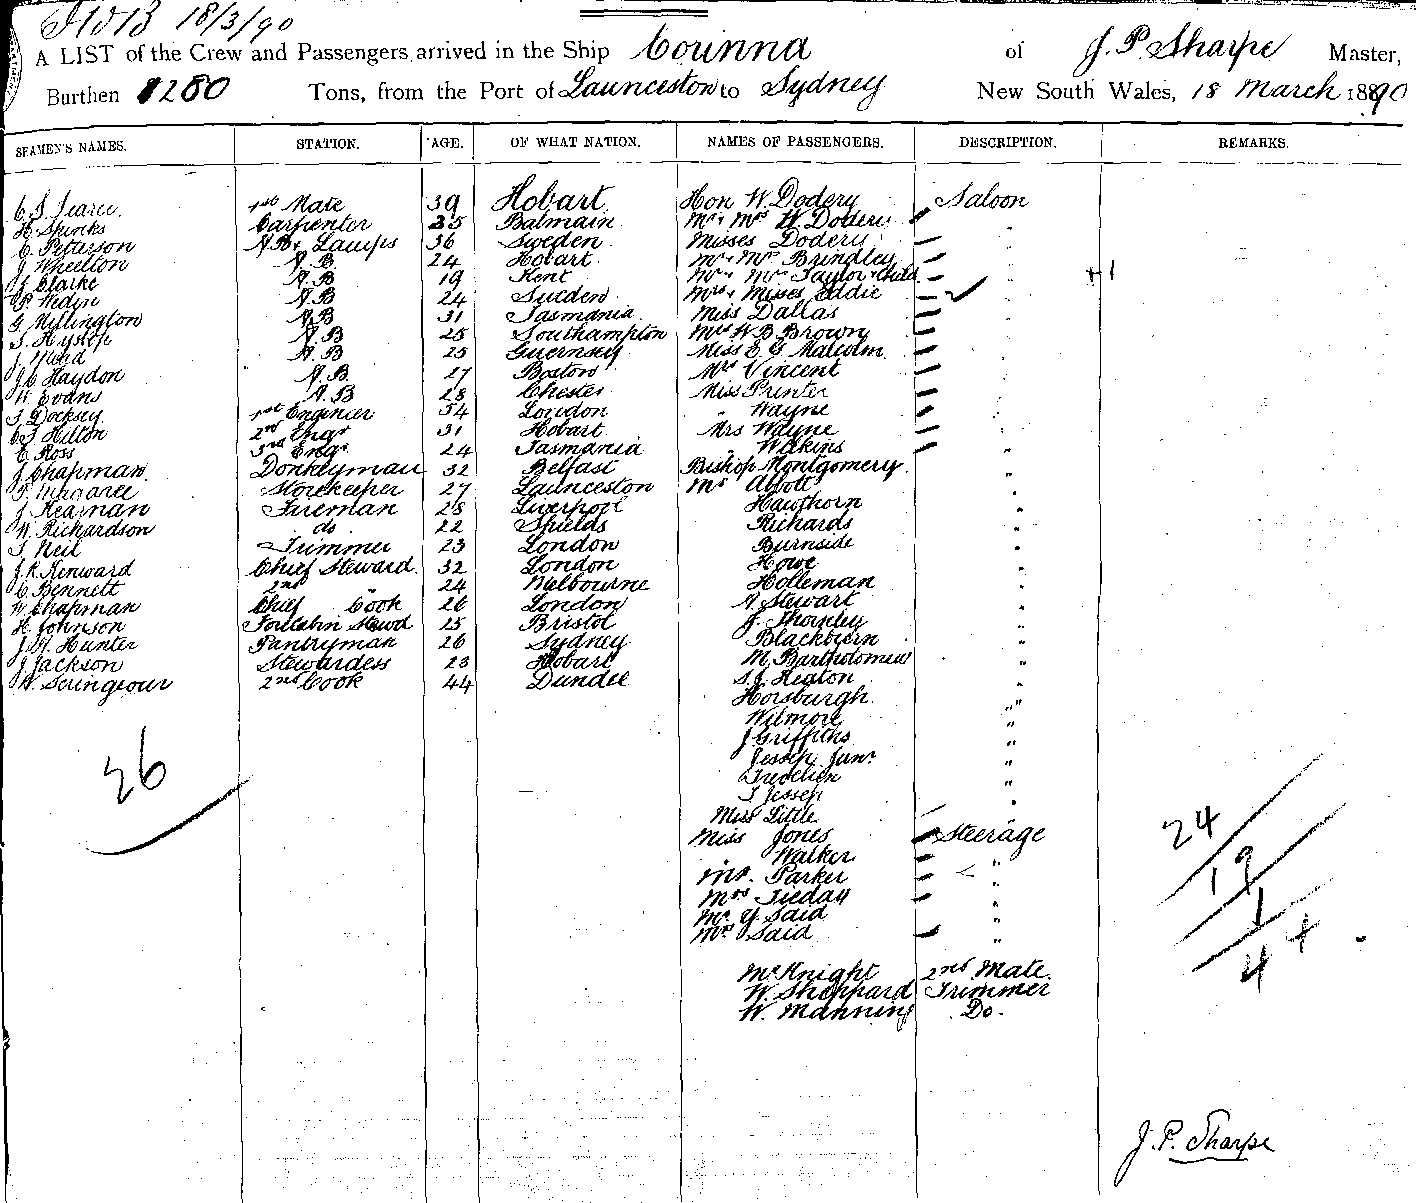 18/3/90
A LIST of the Crew and Passengers arrived in the Ship Corinna of J. P. Sharpe Master,
Burthen 1280 Tons, from the Port of Launceston to Sydney New South Wales, 18 March 1890
SEAMEN'S NAMES. STATION. AGE. OF WHAT NATION. NAMES OF PASSENGERS. DESCRIPTION. REMARKS.
1st Mate 39 Hobart Hon W. Dodery Saloon
H. Spinks Carpenter 35 Balmain Mr & Mrs W Dodery "
C. Petterson AB & Lamps 36 Sweden Misses Dodery "
J Wheelton A B 24 Hobart Mr & Mrs Brindley "
J Clarke A B 19 Kent Mr & Mrs Taylor & Child " +1
Wedin A B 24 Sweden Mrs & Misses Eddie "
G. Millington A B 31 Tasmania Miss Dallas "
T. Hyslop A B 25 Southampton Mrs W B Brown "
J. Ward A. B 25 Guernsey Miss E G Malcolm "
J C Haydon A. B. 27 Boston Mrs Vincent "
W Evans A. B 28 Chester Miss Printer "
T. Docksey 1st Engineer 54 London " Wayne "
Hilton 2nd Engr 31 Hobart Mrs Wayne "
C Ross 3rd Engr 24 Tasmania " Wilkins "
J Chapman Donkeyman 32 Belfast Bishop Montgomery "
Storekeeper 27 Launceston Mr Abbott "
J. Kearnan Fireman 28 Liverpool Hawthorn "
W. Richardson do 22 Shields Richards "
T. Neil Trimmer 23 London Burnside "
J. R. Kenward Chief Steward 32 London Howe "
C Bennett 2nd " 24 Melbourne Holleman "
W. Chapman Chief Cook 26 London A Stewart "
H. Johnson Forecabin Stewd 25 Bristol J. Thornley "
J. A. Hunter Pantryman 26 Sydney Blackburn "
J Jackson Stewardess 23 Hobart M. Bartholomew "
W. Scringeour 2nd Cook 44 Dundee S. J. Heaton "
Horsburgh "
Wilmore "
J Griffiths "
Jessep Junr "
"
T Jessep "
Miss Little "
Miss Jones Steerage
Walker "
Mr. Parker "
Mrs "
Mr Y. Said "
Mrs Said "
McKnight 2nd Mate
W. Sheppard Trimmer
W. Manning Do.
26
24
19
1
4 +
J. P. Sharpe